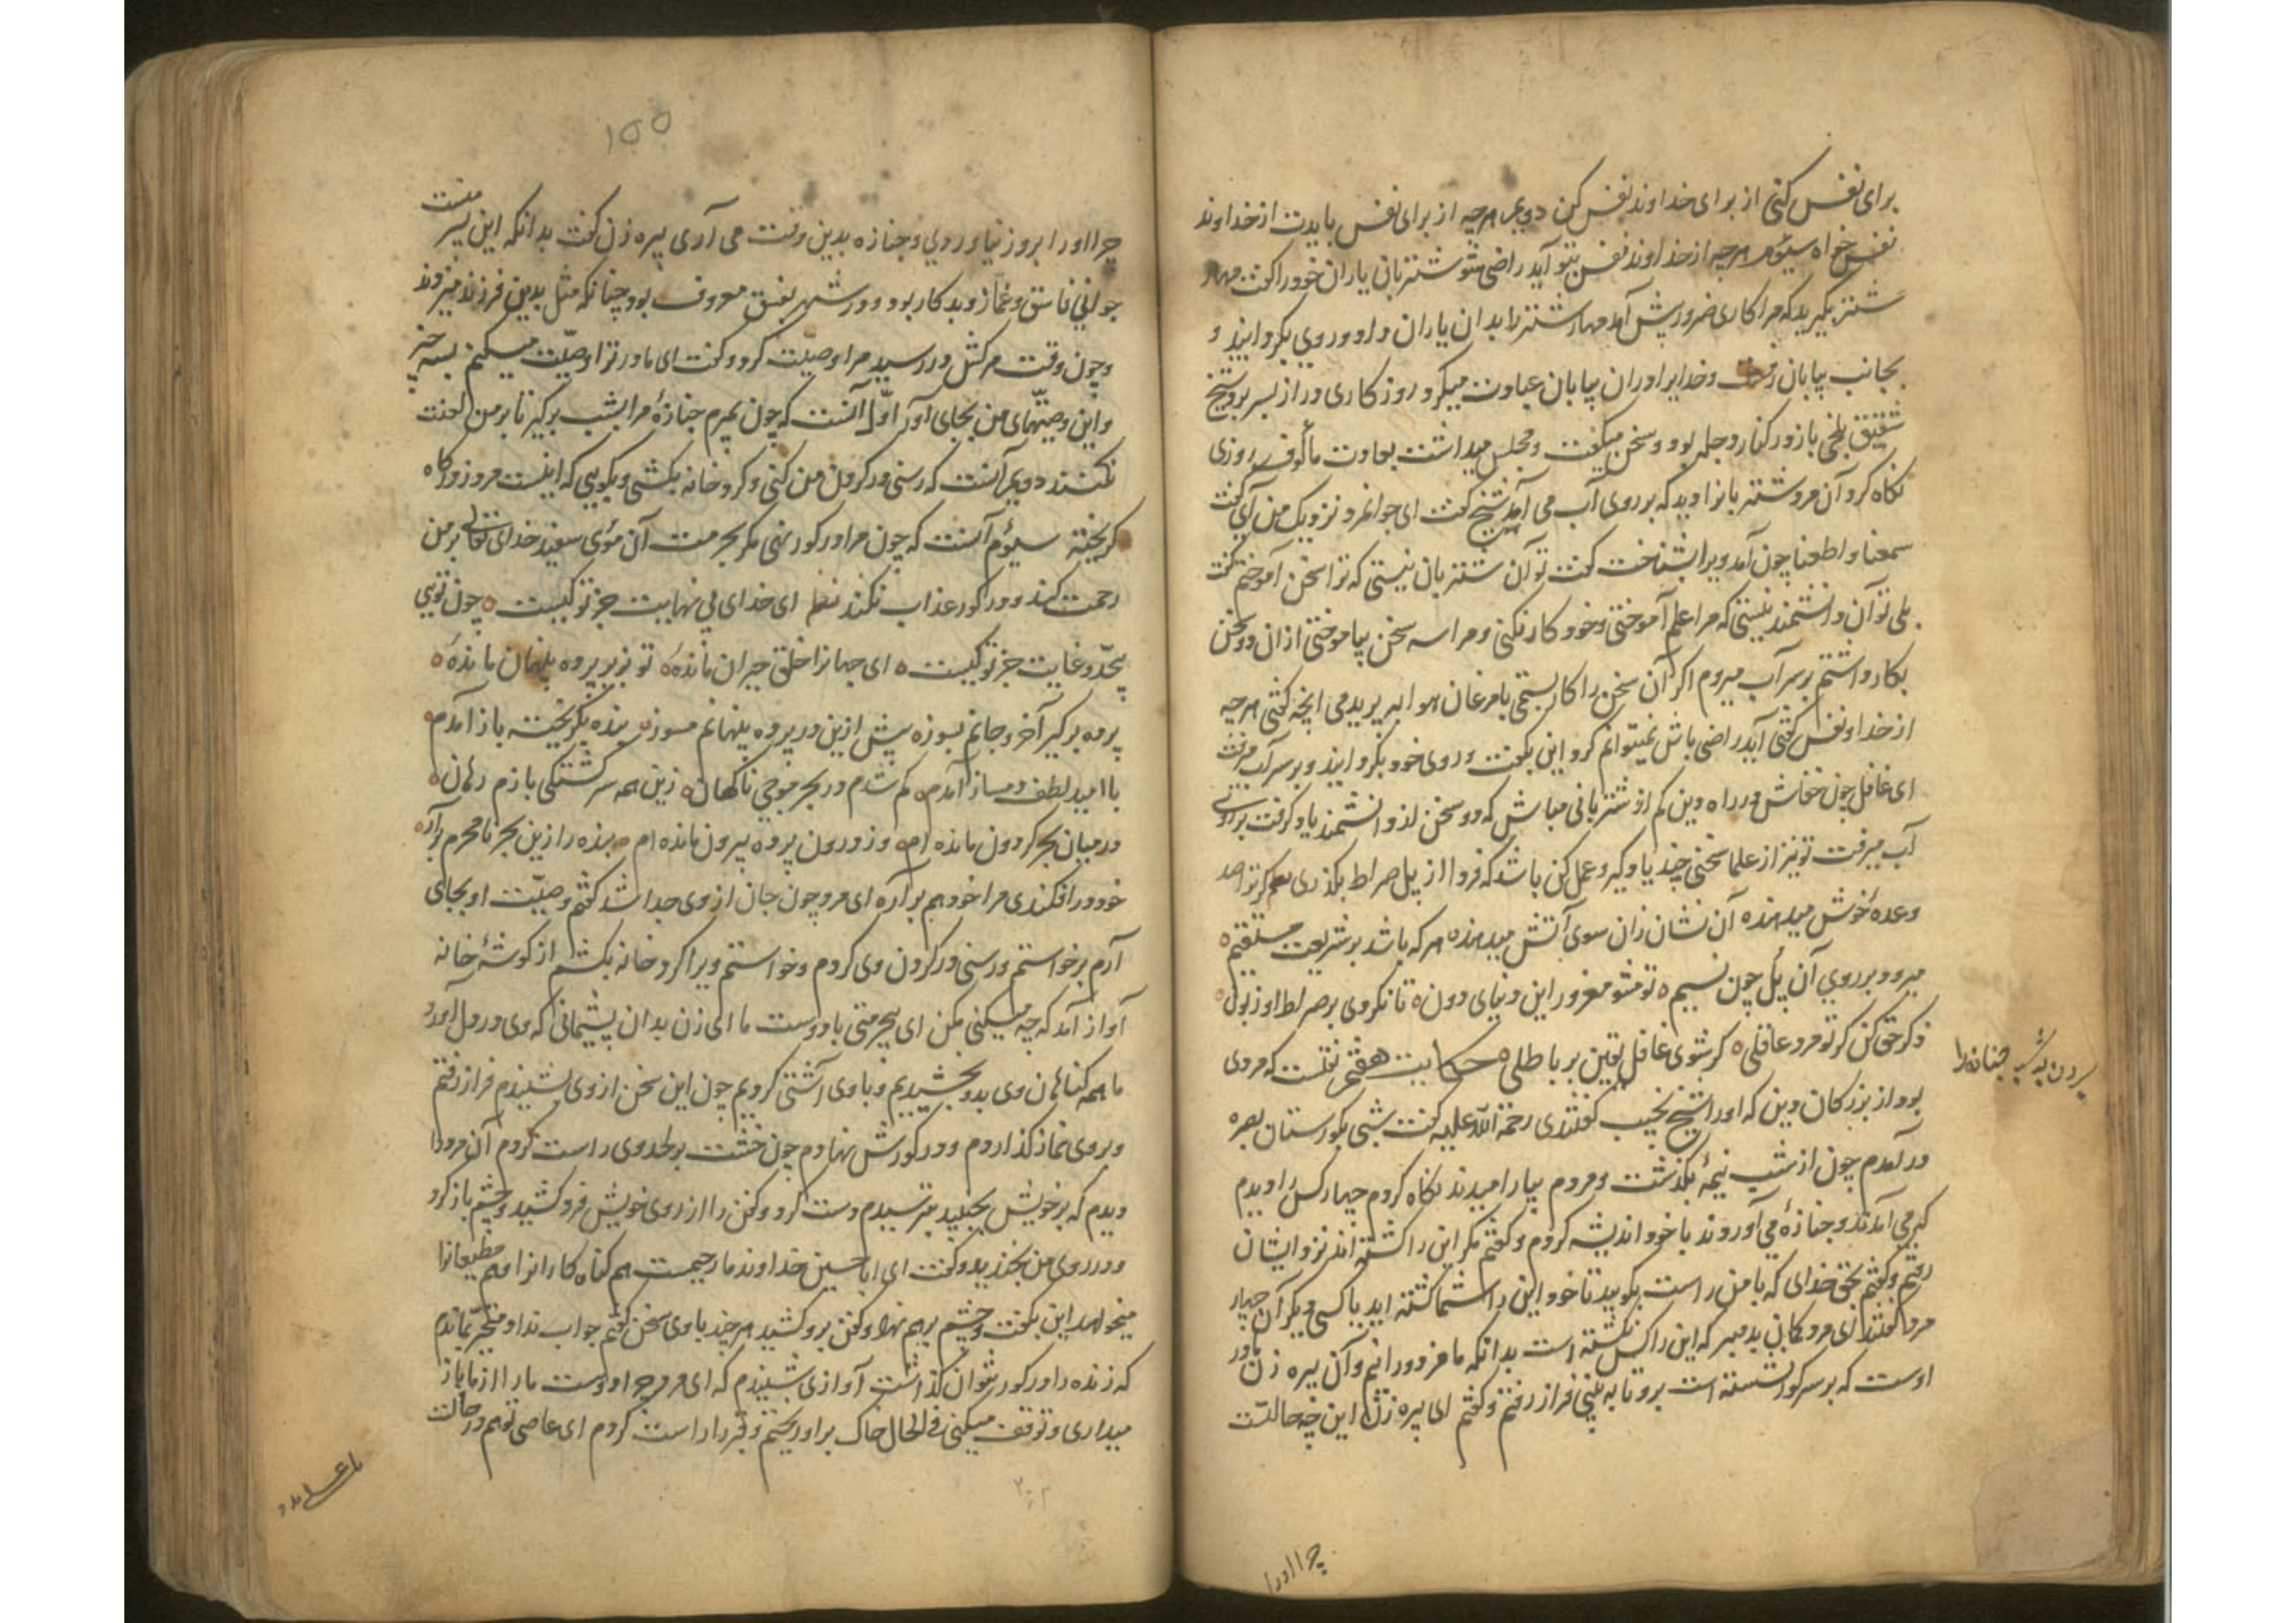 برای نفس کنی از برای خداوند نفس کن دویم هرچه از برای نفس بایدت از خداوند
نفس خواه سیوم هرچه از خداوند نفس بتو آید راضی شو شتربان یاران خود را گفت مهار
شتر بگیرید که مرا کاری ضرور پیش آمد مهار شتر را بدان یاران داد و روی بگردانید و
بجانب بیابان رفت و خدایرا دران بیابان عبادت میکرد روزگاری دراز بسر برد شیخ
شقیق بلخی باز در کنار دجله بود و سخن میگفت و مجلس میداشت بعادت مألوف روزی
نگاه کرد آن مرد شتربانرا دید که بر روی آب می آمد شیخ گفت ای جوانمرد نزدیک من آی گفت
سمعنا و اطعنا چون آمد ویرا بشناخت گفت تو آن شتربان نیستی که ترا سخن آموختم گفت
بلی تو آن دانشمند نیستی که مرا علم آموختی و خود کار نکنی و مرا سه سخن بیاموختی ازان دو سخن
بکار داشتم بر سر آب میروم اگر آن سخن را کار بستمی با مرغان هوا بپریدمی آنچه گفتی هرچه
از خداوند نفس آید راضی باش نمیتوانم کرد این بگفت و روی خود بگردانید و بر سر آب برفت
ای غافل چون خفاش در راه دین کم از شتربانی مباش که دو سخن از دانشمند یاد گرفت بر روی
آب میرفت تو نیز از علما سخنی چند یاد گیر و عمل کن باشد که فردا از پل صراط بگذری نظم گر ترا صد
وعدهٔ خوش میدهند آن نشان زان سوی آتش میدهند هر که باشد بر شریعت مستقیم
میرود بر روی آن پل چون نسیم تو مشو مغرور این دنیای دون تا نگردی بر صراط او زبون
ذکر حق کن گر تو مرد عاقلی گر شوی غافل یقین بر باطلی حکایت هفتم نقلست که مردی
بود از بزرگان دین که او را شیخ نجیب گفتندی رحمة الله علیه گفت شبی بگورستان بصره
در آمدم چون از شب نیمهٔ بگذشت و مردم بیارامیدند نگاه کردم چهار کس را دیدم
که می آمدند و جنازهٔ می آوردند با خود اندیشه کردم و گفتم مگر این را کشته اند نزد ایشان
رفتم و گفتم بحق خدای که با من راست بگویید تا خود این را شما کشته اید یا کسی دیگر آن چهار
مرد گفتند ای مرد گمان بد مبر که این را کس نکشته است بدانکه ما مزدورانیم و آن پیره زن مادر
اوست که بر سر گور نشسته است برو تا به بینی فراز رفتم و گفتم ای پیره زن این چه حالتست
بردن به شب جنازه را
چرا او را
۱۵۵
چرا او را بروز نیاوردی و جنازه بدین وقت می آری پیره زن گفت بدانکه این پسر منست
جوانی فاسق و غماز و بدکار بود و در شهر بفسق معروف بود چنانکه مثل بدین فرزند میزدند
و چون وقت مرگش در رسید مرا وصیّت کرد و گفت ای مادر ترا وصیّت میکنم بسه چیز
و این وصیّتهای من بجای آور اوّل آنست که چون بمیرم جنازهٔ مرا بشب برگیر تا بر من لعنت
نکنند دویم آنست که رسنی در گردن من کنی و گرد خانه بکشی و بگویی که اینست مرد ز درگاه
گریخته سیوم آنست که چون مرا در گور نهی مگر بحرمت آن موی سفید خدای تعالی بر من
رحمت کند و در گور عذاب نکند نظم ای خدای بی نهایت جز تو کیست چون تویی
بیحدّ و غایت جز تو کیست ای جهانرا خلق حیران مانده تو بزیر پرده پنهان مانده
پرده برگیر آخر و جانم بسوز بیش ازین در پرده پنهانم مسوز بنده بگریخته باز آمدم
با امید لطف دمساز آمدم گم شدم در بحر موجی ناگهان زین همه سرگشتگی بازم رهان
در میان بحر گردون مانده ام وز درون پرده بیرون مانده ام بنده را زین بحر نامحرم برآر
خود در افکندی مرا خود هم برآر ای مرد چون جان از وی جدا شد گفتم وصیّت او بجای
آرم برخواستم و رسنی در گردن وی کردم و خواستم ویرا گرد خانه بکشم از گوشهٔ خانه
آواز آمد که چه میکنی مکن ای بیحرمتی با دوست ما ای زن بدان پشیمانی که وی در دل آورد
ما همه گناهان وی بدو بخشیدیم و با وی آشتی کردیم چون این سخن از وی بشنیدم فراز رفتم
و بر وی نماز گذاردم و در گورش نهادم چون خشت بر لحد وی راست کردم آن مرد را
دیدم که بر خویش بجنبید بترسیدم دست کرد و کفن را از روی خویش فرو کشید و چشم باز کرد
و در روی من بخندید و گفت ای ابا حسین خداوند ما رحیمست هم گناه کارانرا و هم مطیعانرا
میخواهد این بگفت و چشم برهم نهاد و کفن برو کشید هر چند با وی سخن گفتم جواب نداد متحیّر بماندم
که زنده را در گور نتوان گذاشت آوازی شنیدم که ای مرد چرا دوست ما را از ما باز
میداری و توقف میکنی فی الحال خاک برو ریختم و قبر را راست کردم ای عاصی تو هم در حالت